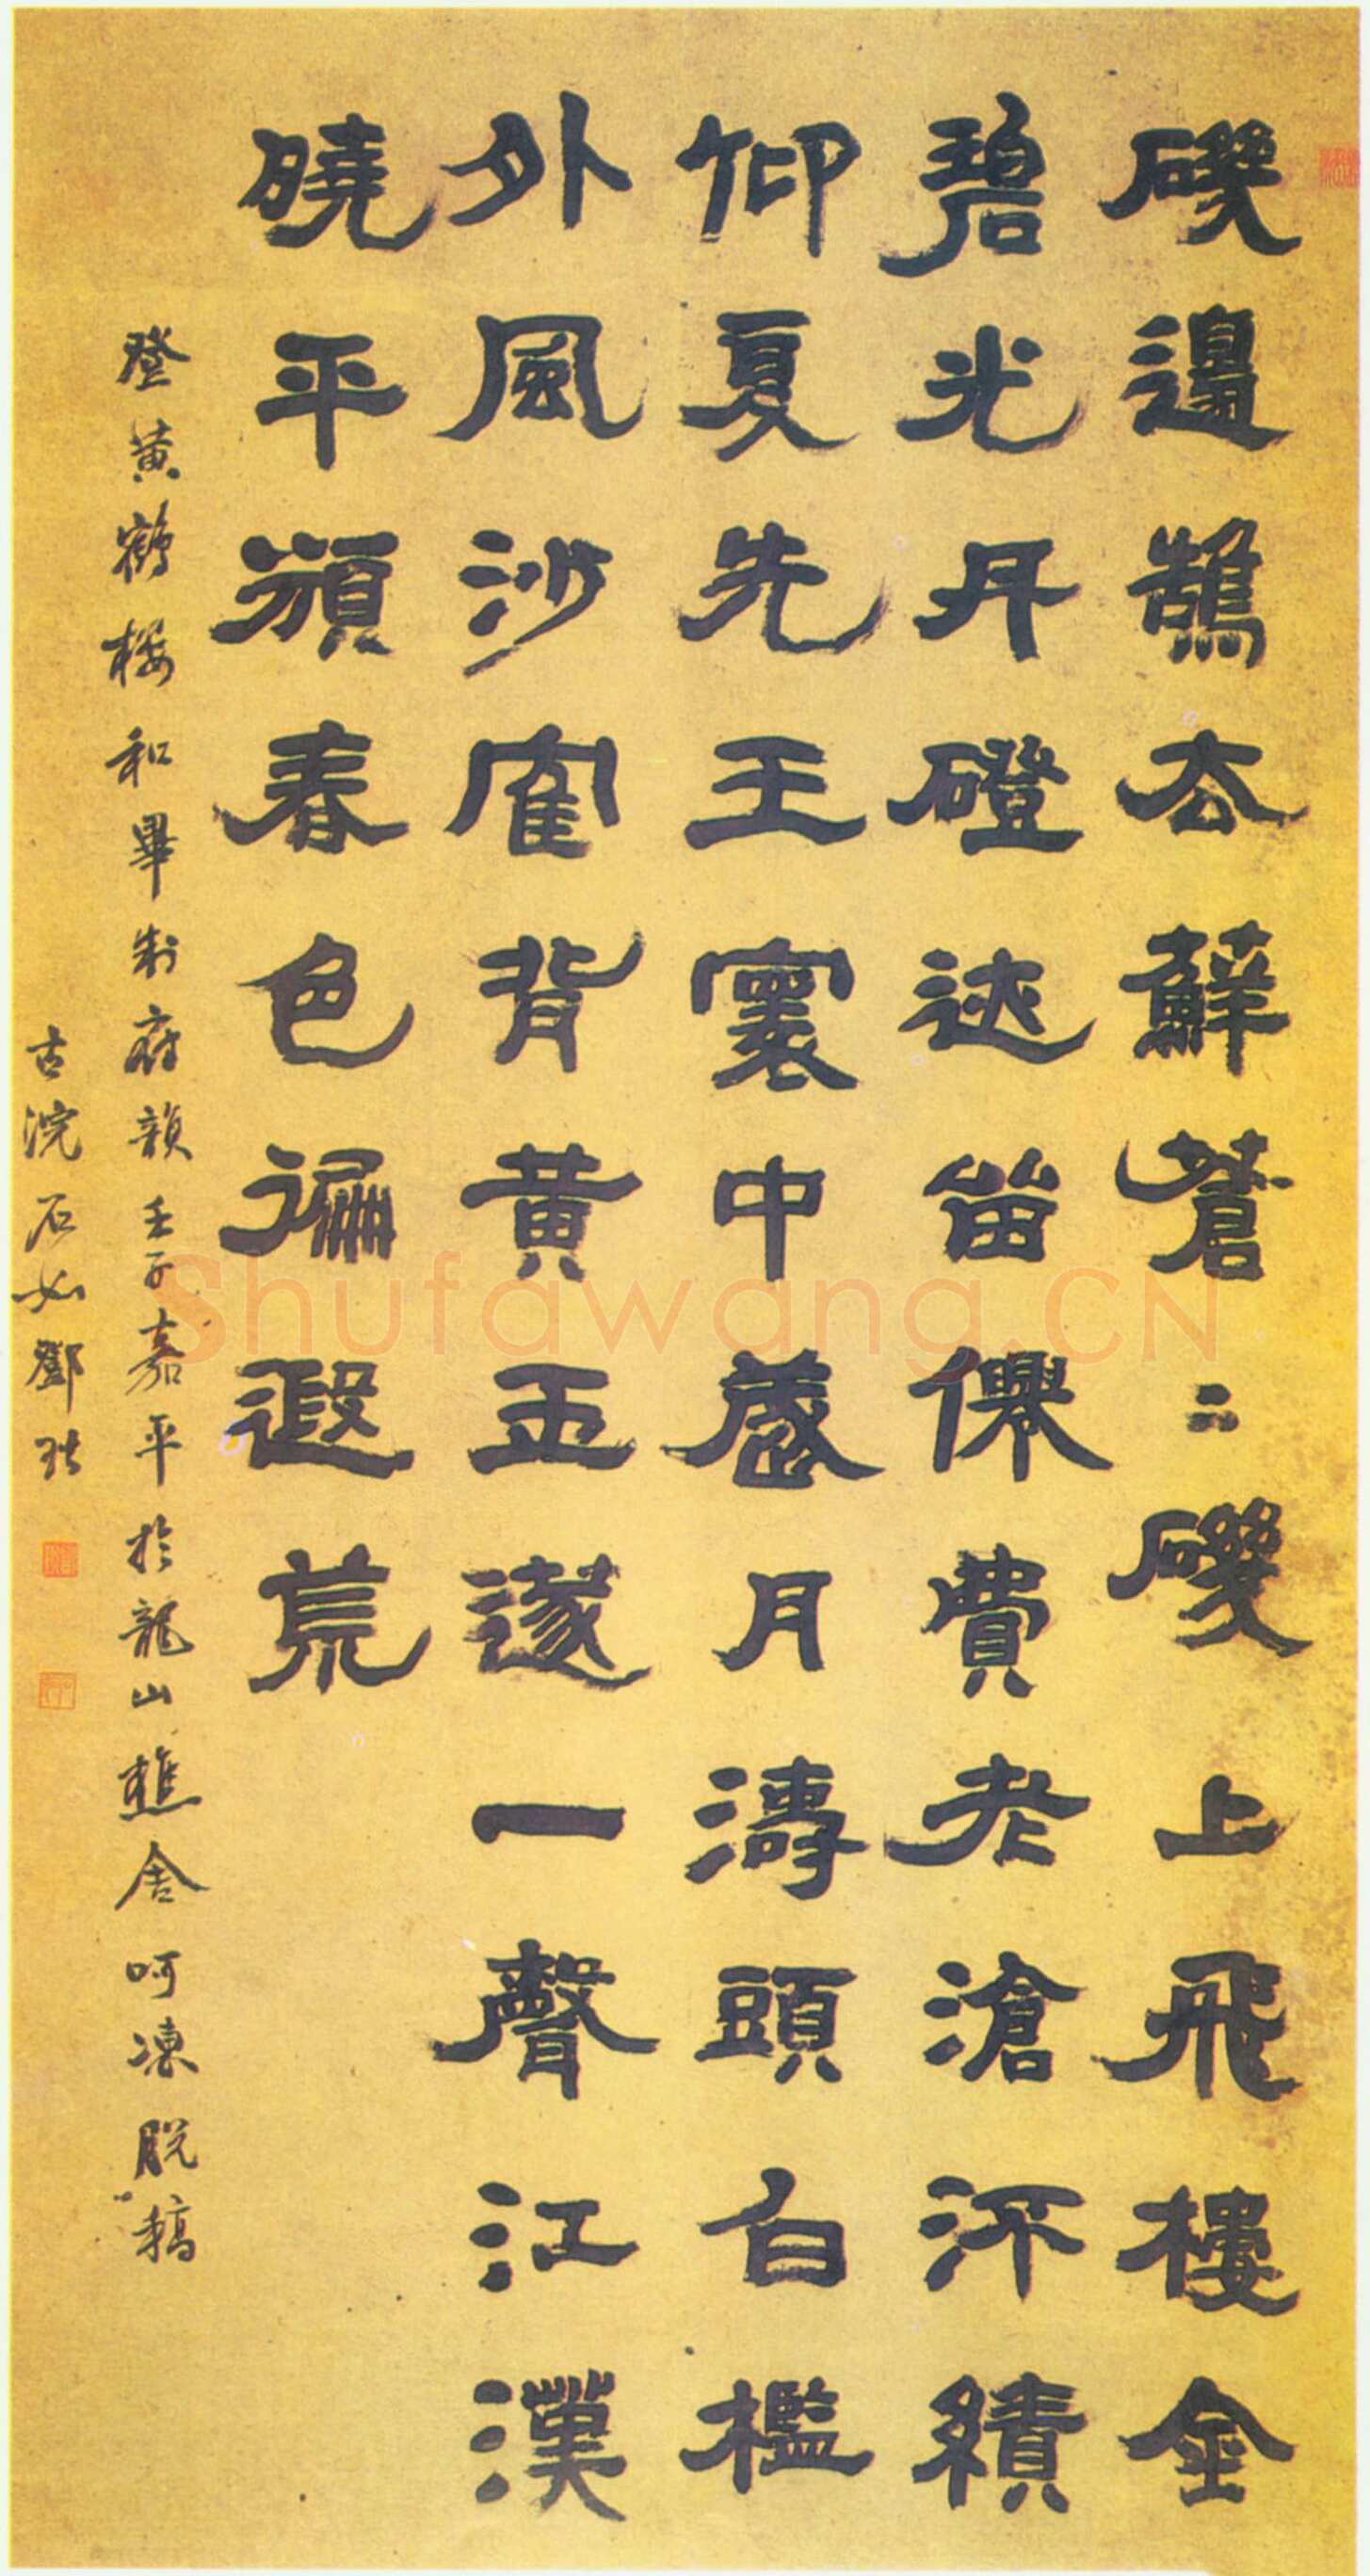 磯邊鵠去蘚蒼〻磯上飛樓金
碧光丹磴迹畱僊費老滄績
仰夏先王寰中歲月濤頭白檻
外風沙隺背黃玉遂一聲江漢
曉平頒春色徧遐荒
登黃鶴樓和畢制府韻壬子嘉平於龍山樵舍呵凍脫稿
古浣石如鄧琰
Shufawang.CN